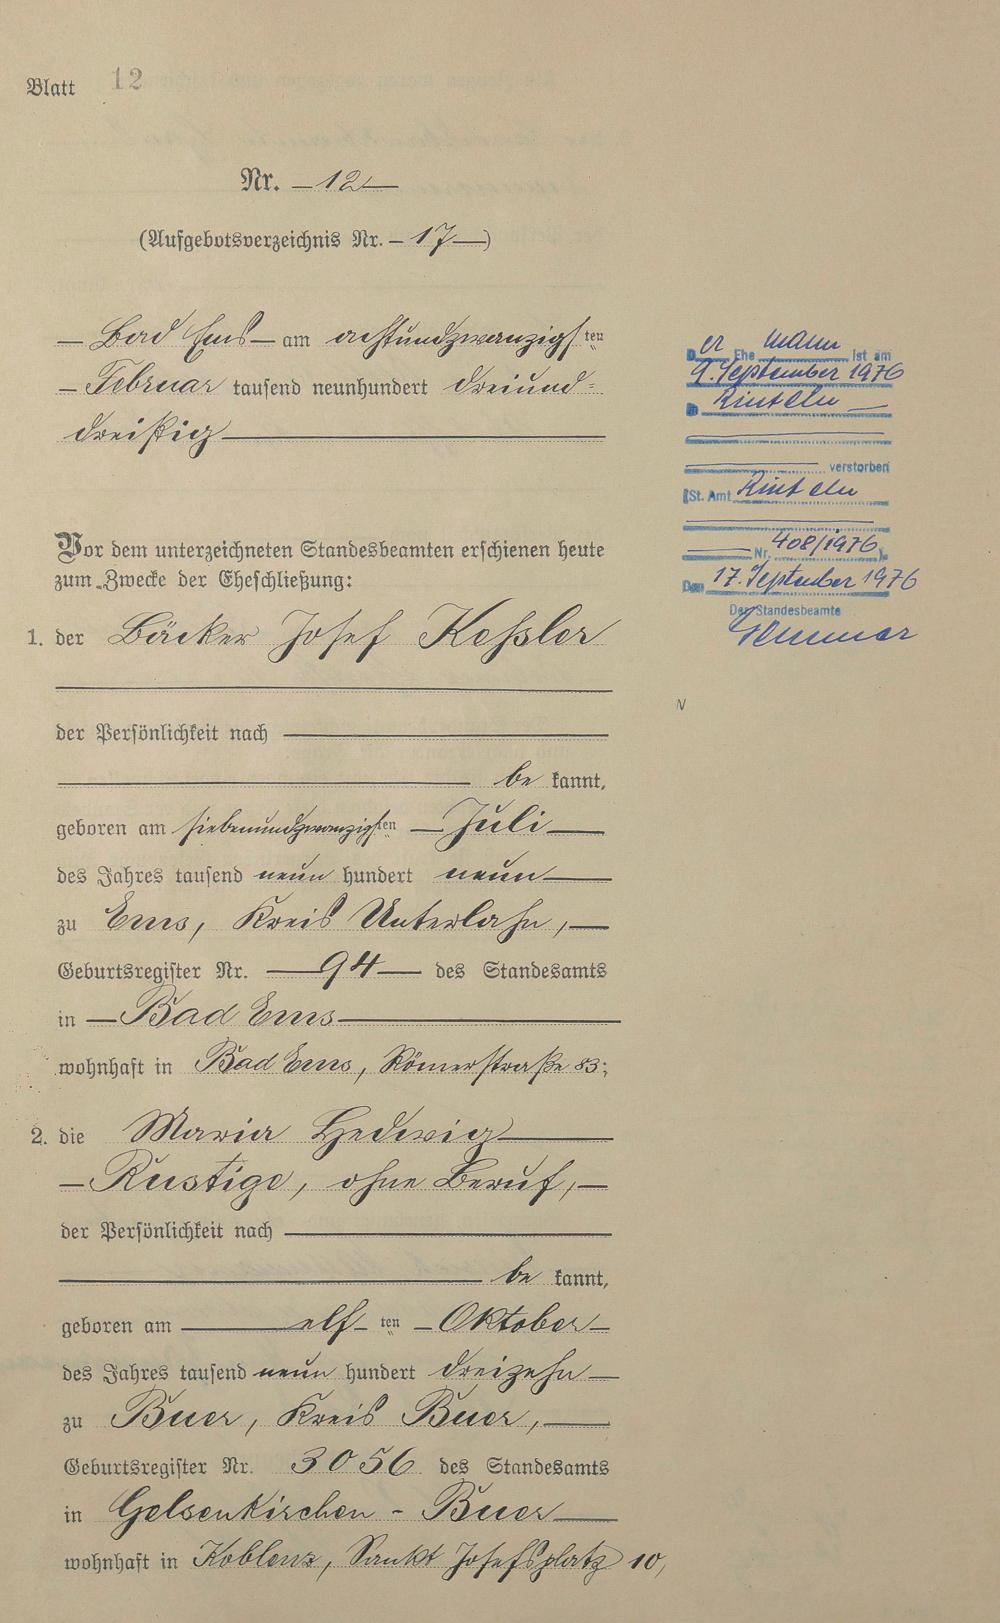 Blatt 12
Nr. 12
(Aufgebotsverzeichnis Nr. 17)
Bad Ems am achtundzwanzigsten
Februar tausend neunhundert dreiund=
dreißig
Vor dem unterzeichneten Standesbeamten erschienen heute
zum Zwecke der Eheschließung:
1. der Bäcker Josef Keßler
der Persönlichkeit nach
be kannt,
geboren am siebenundzwanzigsten Juli
des Jahres tausend neun hundert neun
zu Ems, Kreis Unterlahn,
Geburtsregister Nr. 94 des Standesamts
in Bad Ems
wohnhaft in Bad Ems, Römerstraße 83;
2. die Maria Hedwig
Rustige, ohne Beruf,
der Persönlichkeit nach
be kannt,
geboren am elf ten Oktober
des Jahres tausend neun hundert dreizehn
zu Buer, Kreis Buer,
Geburtsregister Nr. 3056 des Standesamts
in Gelsenkirchen - Buer
wohnhaft in Koblenz, Sankt Josefsplatz 10,
Der Ehe mann ist am
9. September 1976
in Rinteln
verstorben
(St. Amt Rinteln
Nr. 408/1976).
Den 17. September 1976
Der Standesbeamte
N